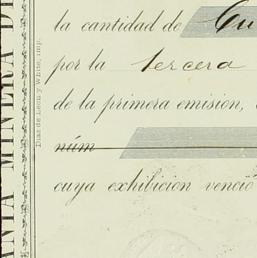 la cantidad de Cu
por la tercera
de la primera emisión,
núm
cuya exhibicion venció
Diaz de Leon y White, imp.
NIA MINERA DE